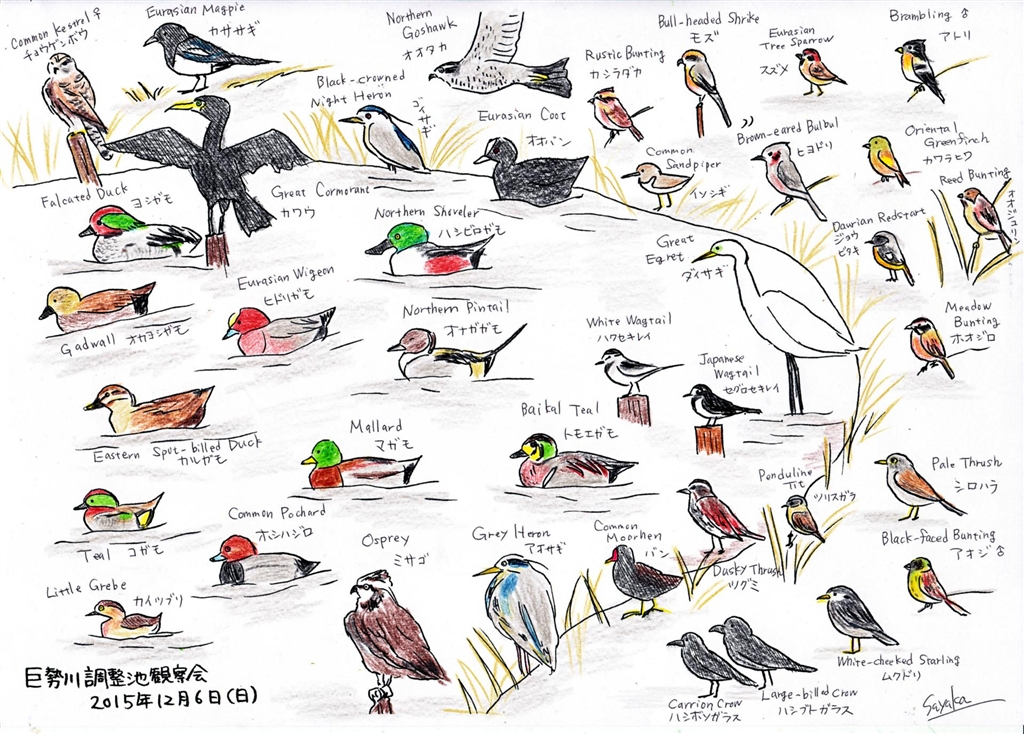 Common Kestrel ♀
チョウゲンボウ
Eurasian Magpie
カササギ
Northern
Goshawk
オオタカ
Bull-headed Shrike
モズ
Brambling ♂
アトリ
Rustic Bunting
カシラダカ
Eurasian
Tree Sparrow
スズメ
Black-crowned
Night Heron
ゴイサギ
Eurasian Coot
オオバン
Common
Sandpiper
イソシギ
Brown-eared Bulbul
ヒヨドリ
Oriental
Greenfinch
カワラヒワ
Reed Bunting
オオジュリン
Falcated Duck
ヨシガモ
Great Cormorant
カワウ
Northern Shoveler
ハシビロガモ
Great
Egret
ダイサギ
Daurian Redstart
ジョウ
ビタキ
Gadwall オカヨシガモ
Eurasian Wigeon
ヒドリガモ
Northern Pintail
オナガガモ
White Wagtail
ハクセキレイ
Japanese
Wagtail
セグロセキレイ
Meadow
Bunting
ホオジロ
Eastern Spot-billed Duck
カルガモ
Mallard
マガモ
Baikal Teal
トモエガモ
Penduline
Tit
ツリスガラ
Pale Thrush
シロハラ
Teal コガモ
Common Pochard
ホシハジロ
Osprey
ミサゴ
Grey Heron
アオサギ
Common
Moorhen
バン
Dusky Thrush
ツグミ
Black-faced Bunting
アオジ♂
Little Grebe
カイツブリ
White-cheeked Starling
ムクドリ
Carrion Crow
ハシボソガラス
Large-billed Crow
ハシブトガラス
巨勢川調整池観察会
2015年12月6日(日)
Sayaka